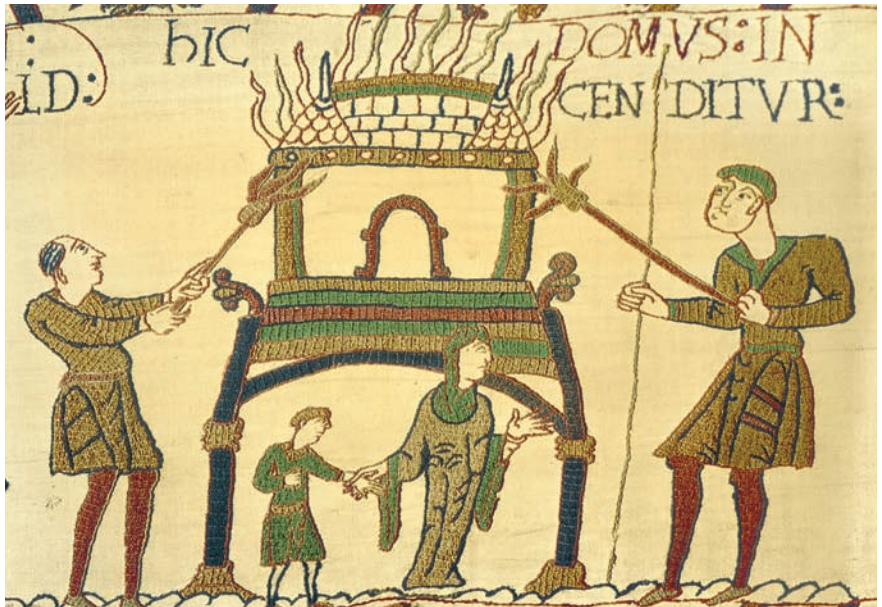 : hIC DOMVS: IN
LD: CENDITVR: